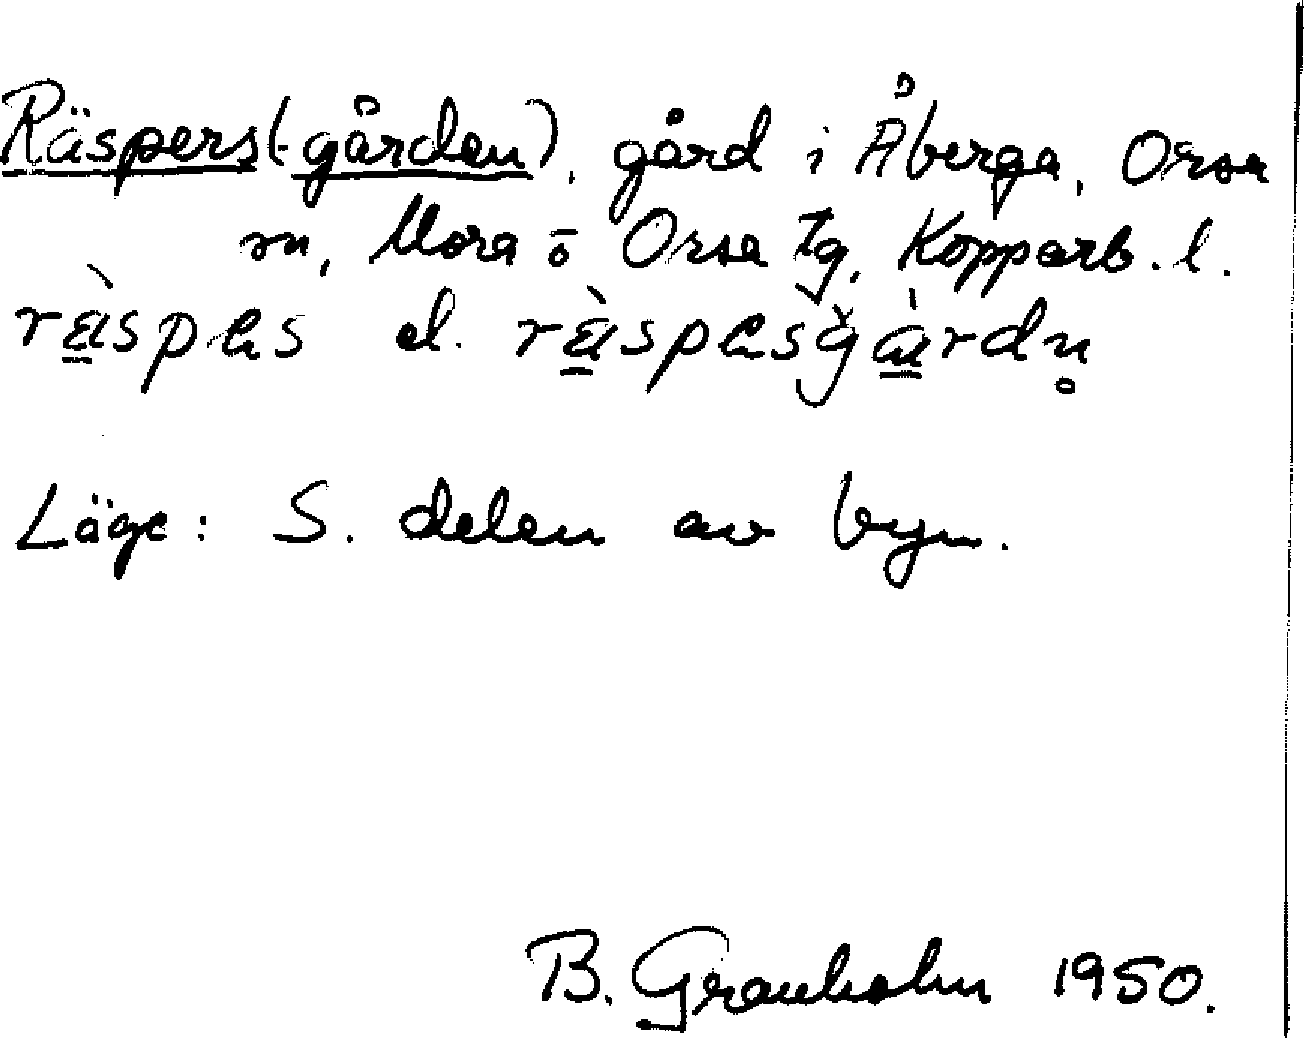 Räspers(-gården), gård i Åberga, Orsa
sn, Mora o Orsa tg, Kopparb. l.
rä̀spes el. rä̀spesgàrdn̥
Läge: S. delen av byn.
B. Granholm 1950.